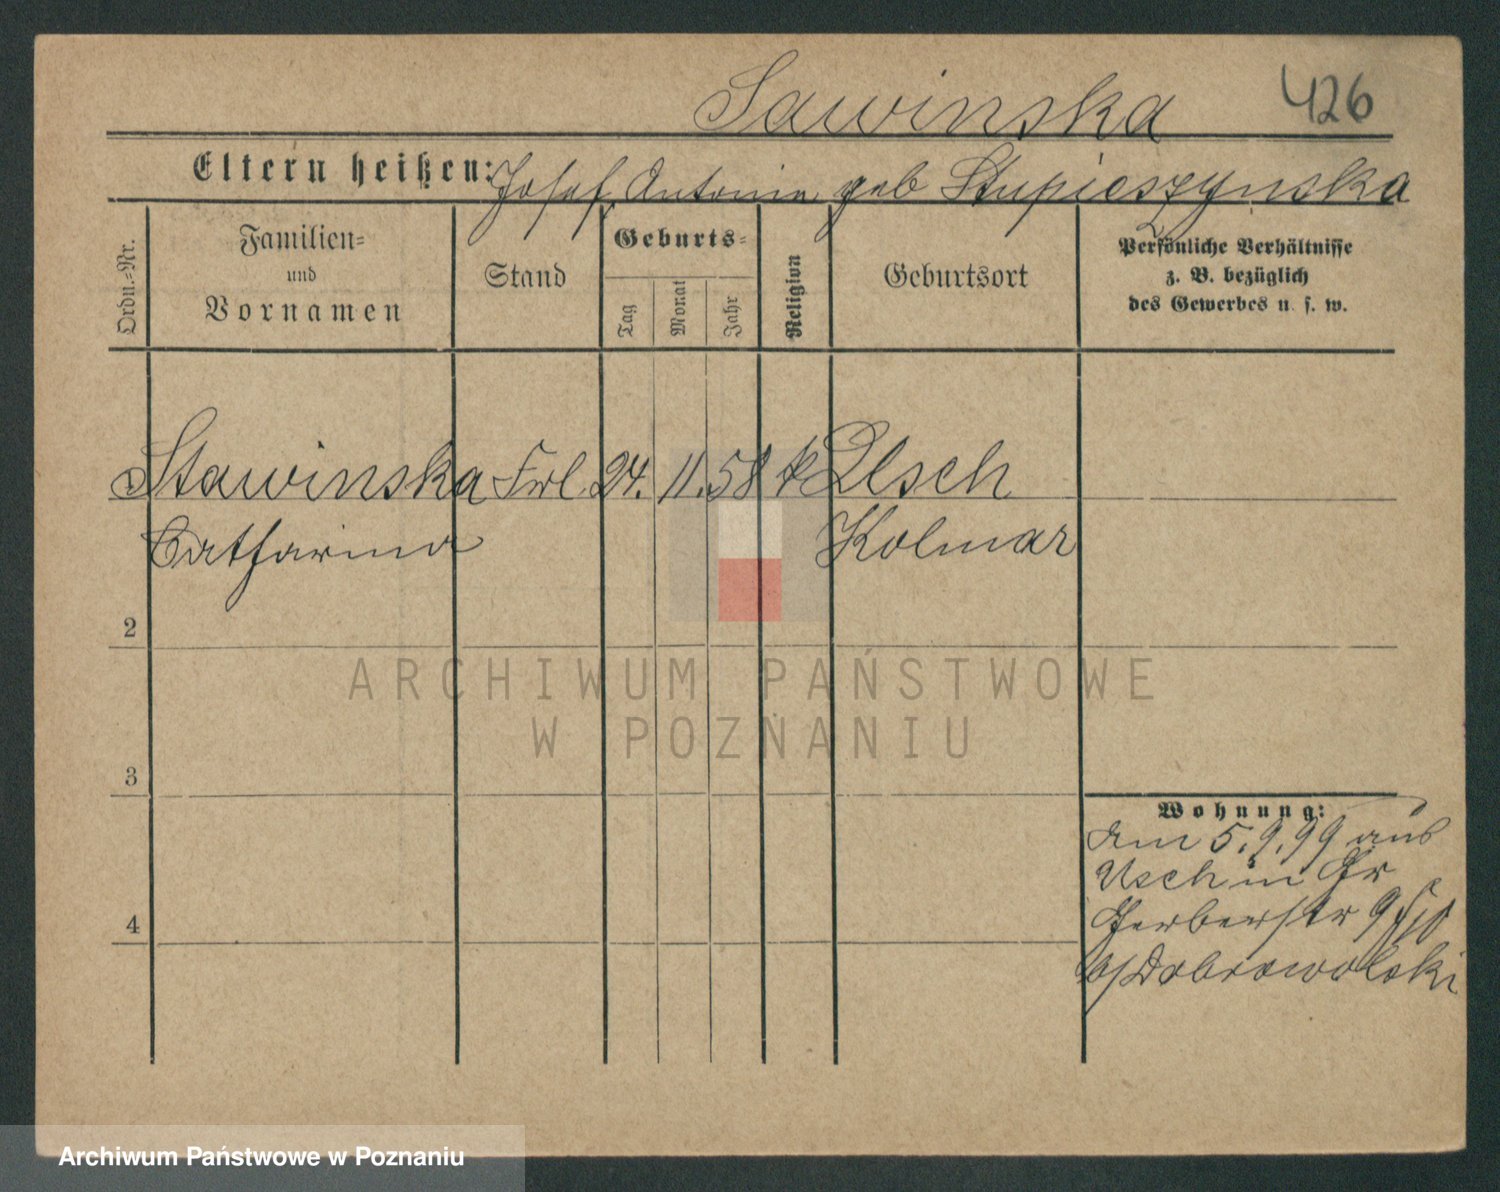 Sawinska 426
Eltern heißen: Josef, Antonie geb Stupieszynska
Ordn.=Nr.
Familien=
und
Vornamen
Stand
Geburts=
Tag
Monat
Jahr
Religion
Geburtsort
Persönliche Verhältnisse
z. B. bezüglich
des Gewerbes u. s. w.
Stawinska Frl. 24. 11. 58 k Usch
Catharina Kolmar
2
3
4
Wohnung:
Am 5.9.99 aus
Usch in Gr
Gerberstr 9
b/Dobrowolski
ARCHIWUM PAŃSTWOWE
W POZNANIU
Archiwum Państwowe w Poznaniu